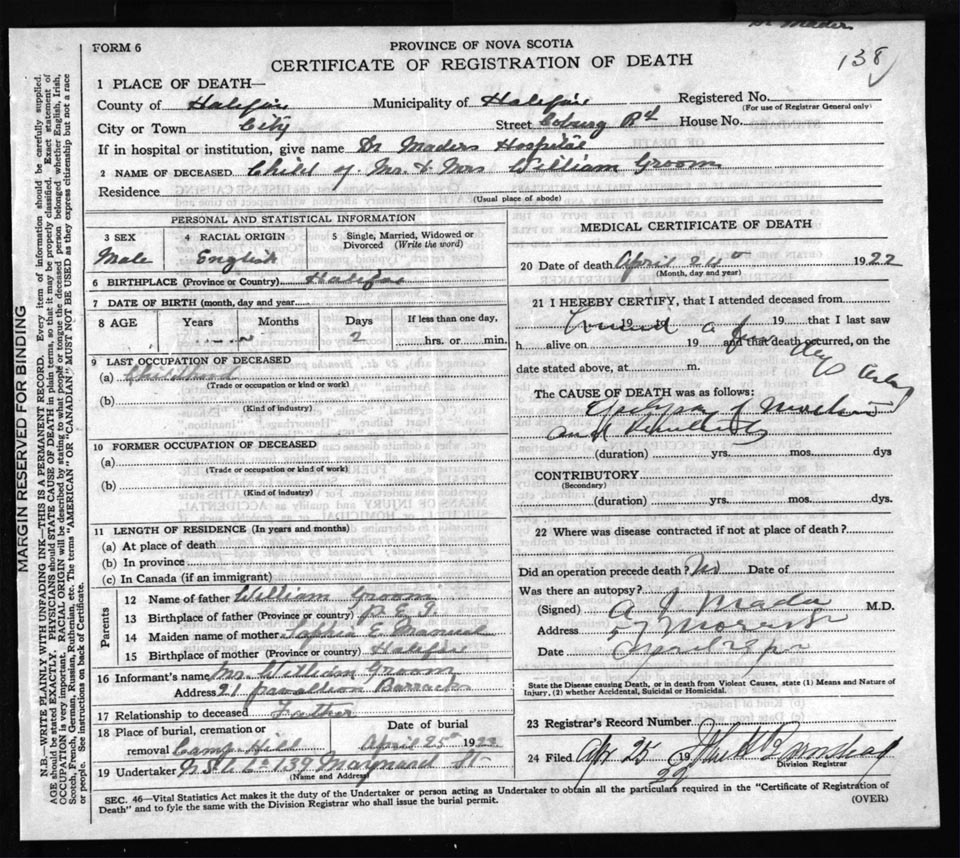 Dr Mader
138
FORM 6
PROVINCE OF NOVA SCOTIA
CERTIFICATE OF REGISTRATION OF DEATH
1 PLACE OF DEATH—
County of Halifax Municipality of Halifax Registered No.
(For use of Registrar General only)
City or Town City Street Coburg Rd House No.
If in hospital or institution, give name Dr Maders Hospital
2 NAME OF DECEASED Child of Mr & Mrs William Groom
Residence
(Usual place of abode)
PERSONAL AND STATISTICAL INFORMATION
3 SEX
Male
4 RACIAL ORIGIN
English
Single, Married, Widowed or Divorced (Write the word)
6 BIRTHPLACE (Province or Country) Halifax
7 DATE OF BIRTH (month, day and year)
8 AGE Years Months Days If less than one day,
2 hrs. or min.
9 LAST OCCUPATION OF DECEASED
(a) Childhood
(Trade or occupation or kind or work)
(b)
(Kind of industry)
10 FORMER OCCUPATION OF DECEASED
(a)
(Trade or occupation or kind of work)
(b)
(Kind of industry)
11 LENGTH OF RESIDENCE (In years and months)
(a) At place of death
(b) In province
(c) In Canada (if an immigrant)
Parents
12 Name of father William Groom
13 Birthplace of father (Province or country) P.E.I.
14 Maiden name of mother Sophia E. Manuel
15 Birthplace of mother (Province or country) Halifax
16 Informant's name Mr. William Groom
Address 21 Pavallion Barracks
17 Relationship to deceased Father
18 Place of burial, cremation or removal Camp Hill
Date of burial
April 25th 1922
19 Undertaker N.S.U. Co 139 Maynard St
(Name and Address)
MEDICAL CERTIFICATE OF DEATH
20 Date of death April 24th 1922
(Month, day and year)
21 I HEREBY CERTIFY, that I attended deceased from
19 19 that I last saw
h alive on 19 and that death occurred, on the
date stated above, at m.
The CAUSE OF DEATH was as follows:
of Mother
and
(duration) yrs. mos. dys
CONTRIBUTORY
(Secondary)
(duration) yrs. mos. dys.
22 Where was disease contracted if not at place of death?
Did an operation precede death? No Date of
Was there an autopsy?
(Signed) A J Mader M.D.
Address 57 Morris St
Date April
State the Disease causing Death, or in death from Violent Causes, state (1) Means and Nature of Injury, (2) whether Accidental, Suicidal or Homicidal.
23 Registrar's Record Number
24 Filed Apr 25 19 22
Division Registrar
SEC. 46—Vital Statistics Act makes it the duty of the Undertaker or person acting as Undertaker to obtain all the particulars required in the "Certificate of Registration of
Death" and to fyle the same with the Division Registrar who shall issue the burial permit.
(OVER)
MARGIN RESERVED FOR BINDING
N.B.—WRITE PLAINLY WITH UNFADING INK—THIS IS A PERMANENT RECORD. Every item of information should be carefully supplied.
AGE should be stated EXACTLY. PHYSICIANS should STATE CAUSE OF DEATH in plain terms, so that it may be properly classified. Exact statement of
OCCUPATION is very important. RACIAL ORIGIN will be described by stating to what people or tongue the deceased person belonged whether English, Irish,
Scotch, French, German, Russian, Ruthenian, etc. The terms "AMERICAN" or "CANADIAN" MUST NOT BE USED as they express citizenship but not a race
or people. See instructions on back of Certificate.